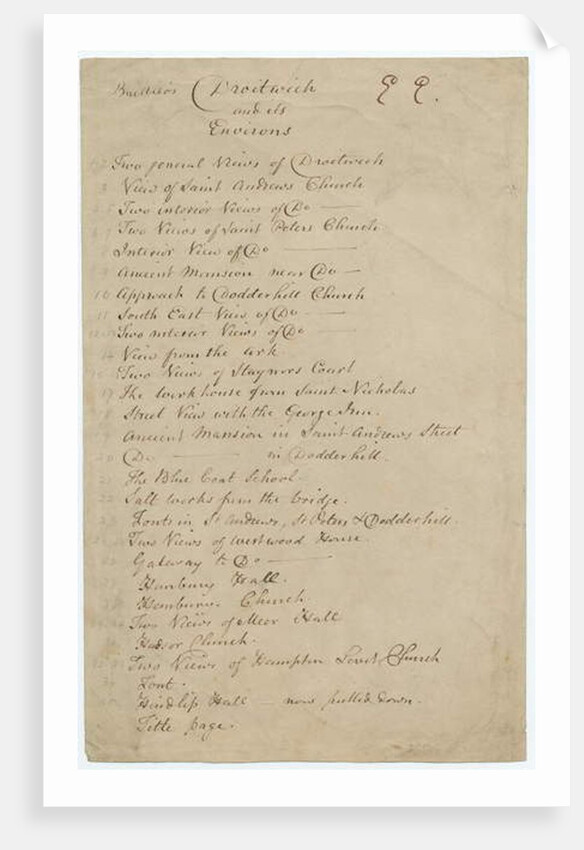 Droitwich E E.
and its
Environs
Two general Views of Droitwich
View of Saint Andrews Church
Two interior Views of Do —
Two Views of Saint Peters Church
Interior View of Do —
9 Ancient Mansion near Do —
10 Approach to Dodderhill Church
11 South East View of Do —
Two interior Views of Do —
14 View from the Ark
Two Views of Staynors Court
17 The Workhouse from Saint Nicholas
18 Street View with the George Inn.
Ancient Mansion in Saint Andrews Street
20 Do — in Dodderhill.
21 The Blue Coat School.
22 Salt works from the bridge.
Fonts in St Andrews, St Peters & Dodderhill.
Two Views of Westwood House.
Gateway to Do —
Hanbury Hall.
Hanbury Church.
Two Views of Meer Hall
Church.
Two Views of Hampton Lovet Church
Font.
Hindlip Hall — now pulled down.
Title page.